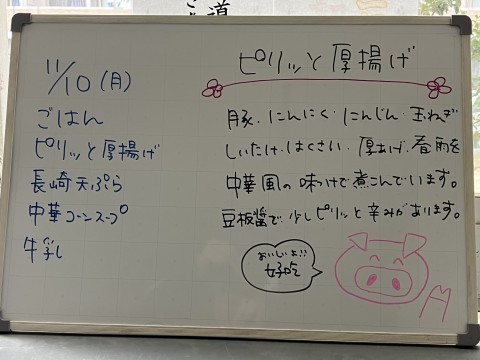 道
11/10(月)
ごはん
ピリッと厚揚げ
長崎天ぷら
中華コーンスープ
牛乳
ピリッと厚揚げ
豚・にんにく・にんじん・玉ねぎ
しいたけ・はくさい・厚あげ・春雨を
中華風の味つけで煮こんでいます。
豆板醤で、少しピリッと辛みがあります。
おいしいよ!!
好吃